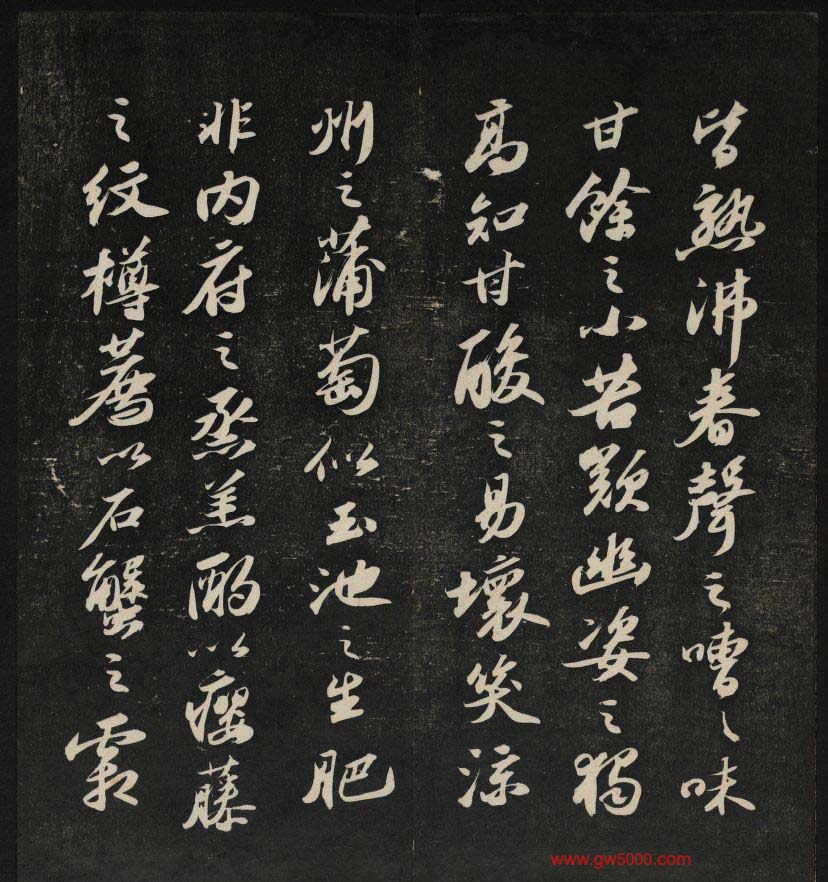 皆熟沸舂聲之嘈〻味
甘餘之小苦歎幽姿之獨
高知甘酸之易壞笑涼
州之蒲萄似玉池之生肥
非内府之烝羔酌以癭藤
之紋樽薦以石蟹之霜
www.gw5000.com